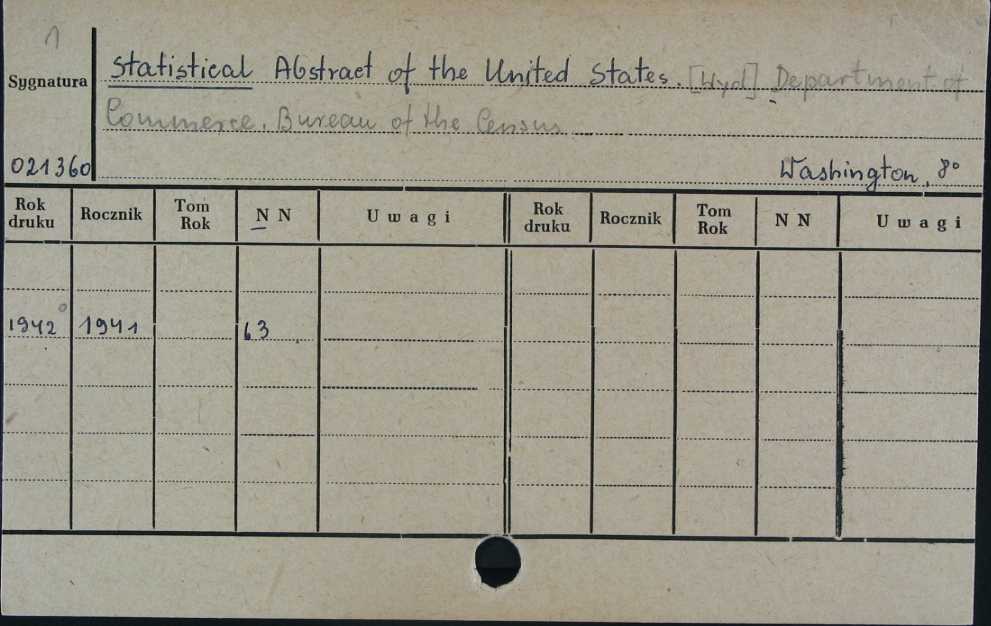 1
Sygnatura
Statistical Abstract of the United States. [Wyd] Department of
Commerce. Bureau of the Census
021360
Washington, 8°
Rok druku Rocznik Tom Rok N N Uwagi Rok druku Rocznik Tom Rok N N Uwagi
1942 1941 63